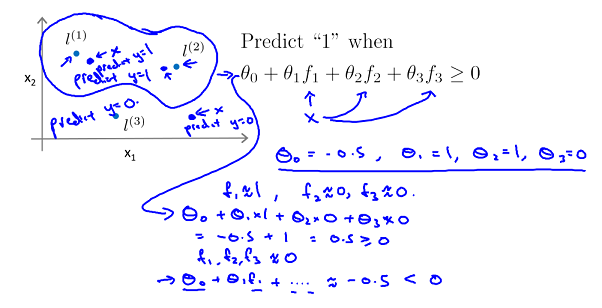 l⁽¹⁾
x
predict y=1
l⁽²⁾
predict y=1
x₂
predict y=0.
l⁽³⁾
x
predict y=0
x₁
Predict “1” when
θ₀ + θ₁f₁ + θ₂f₂ + θ₃f₃ ≥ 0
x
θ₀ = -0.5 , θ₁ = 1, θ₂ = 1, θ₃ = 0
f₁ ≈ 1 , f₂ ≈ 0, f₃ ≈ 0.
→ θ₀ + θ₁×1 + θ₂×0 + θ₃×0
= -0.5 + 1 = 0.5 ≥ 0
f₁, f₂, f₃ ≈ 0
→ θ₀ + θ₁f₁ + .... ≈ -0.5 < 0